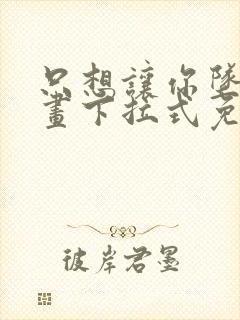 只想讓你墜
畫下拉式免
彼岸君墨